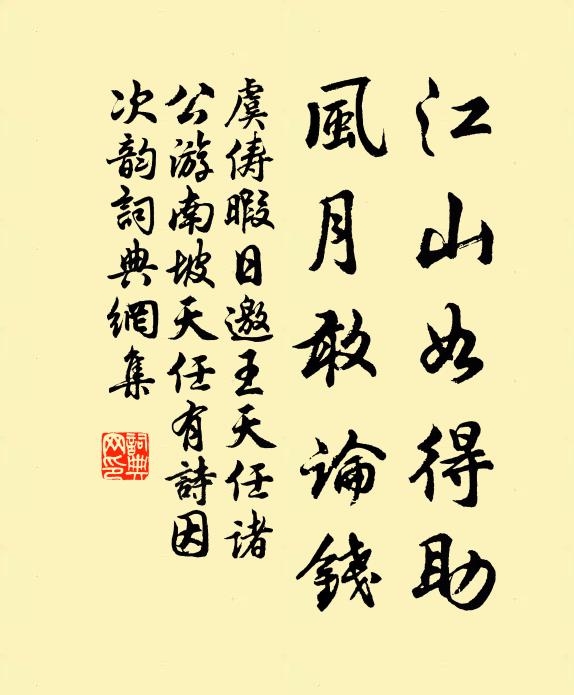 江山如得助
風月敢論錢
虞儔暇日邀王天任诸
公游南坡天任有詩因
次韵詞典網集
詞典
网印